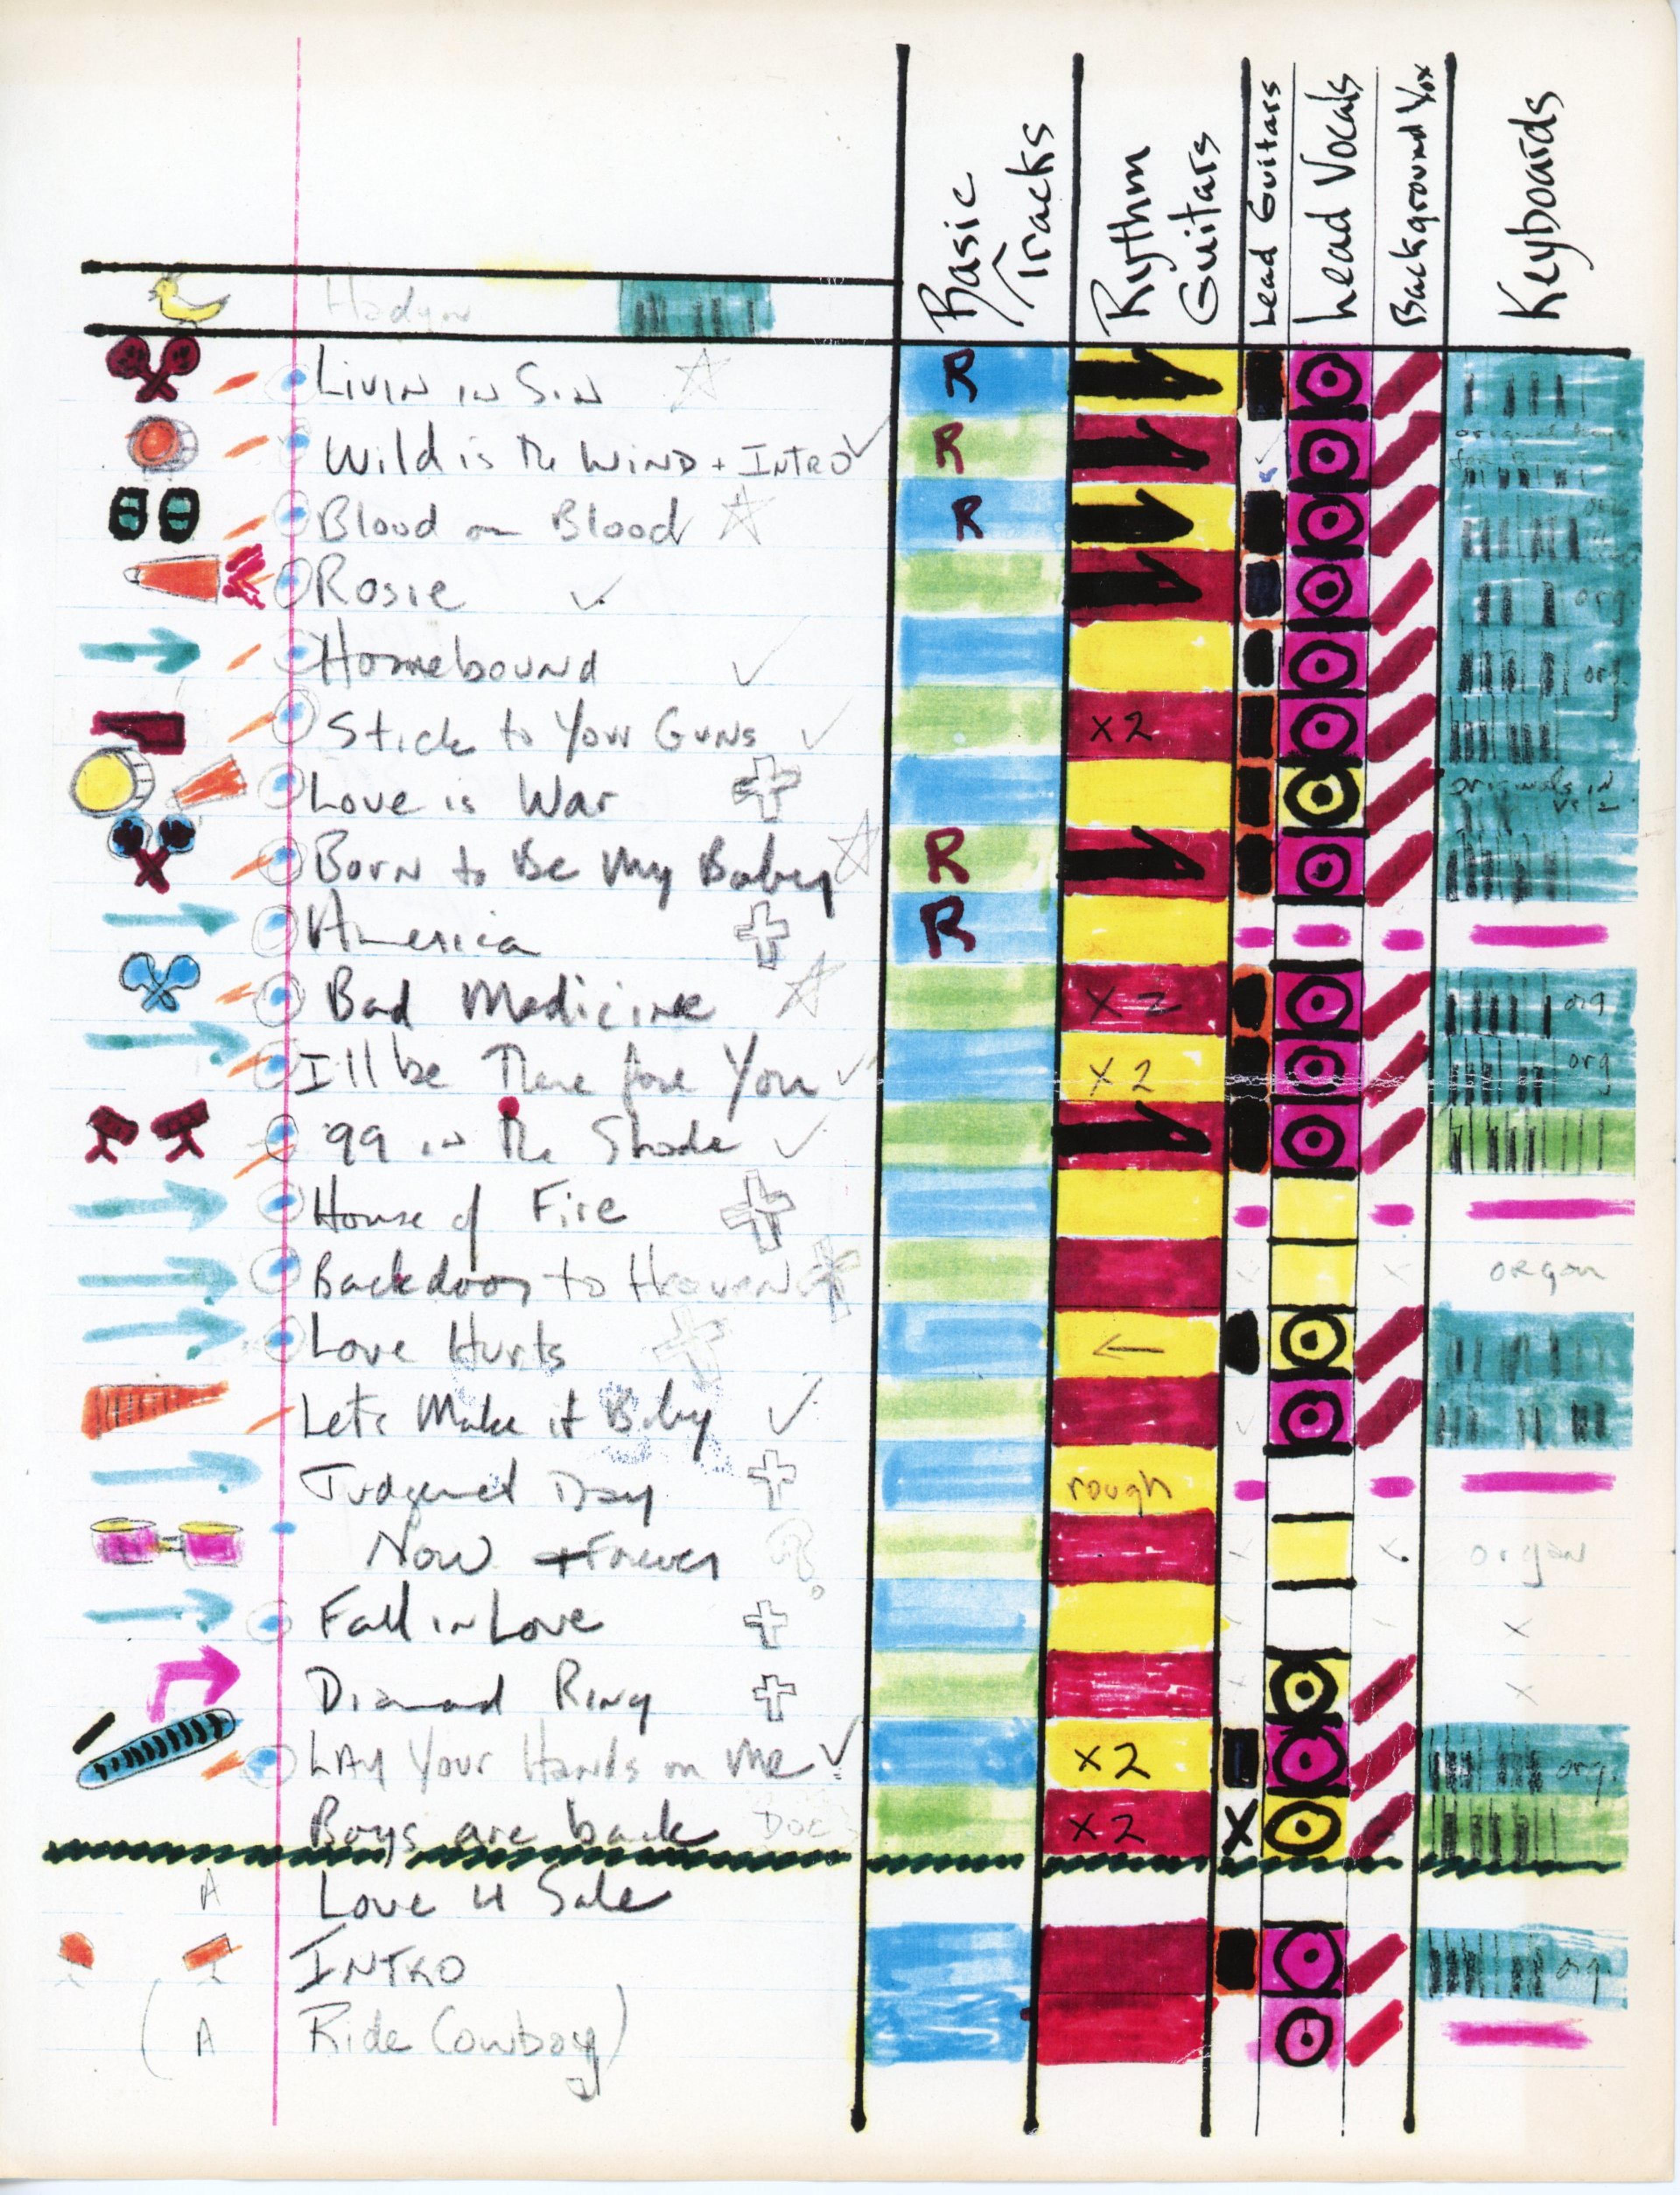 Basic Tracks
Rhythm Guitars
Lead Guitars
Lead Vocals
Background Vox
Keyboards
Livin in Sin R
Wild is the Wind + Intro R
Blood on Blood R
Rosie org
Homebound org
Stick to Your Guns x2
Love is War originals in
Born to Be My Baby R
America R
Bad Medicine x2 org
I'll be There fore You x2 org
99 in the Shade
House of Fire
Backdoor to Heaven organ
Love Hurts ←
Lets Make it Baby
Judgement Day rough
Now + Forever ? x x organ
Fall in Love x
Diamond Ring x
LAY Your Hands on Me x2 org.
Boys are back Doc x2 X
A Love 4 Sale
INTRO org.
( A Ride Cowboy)